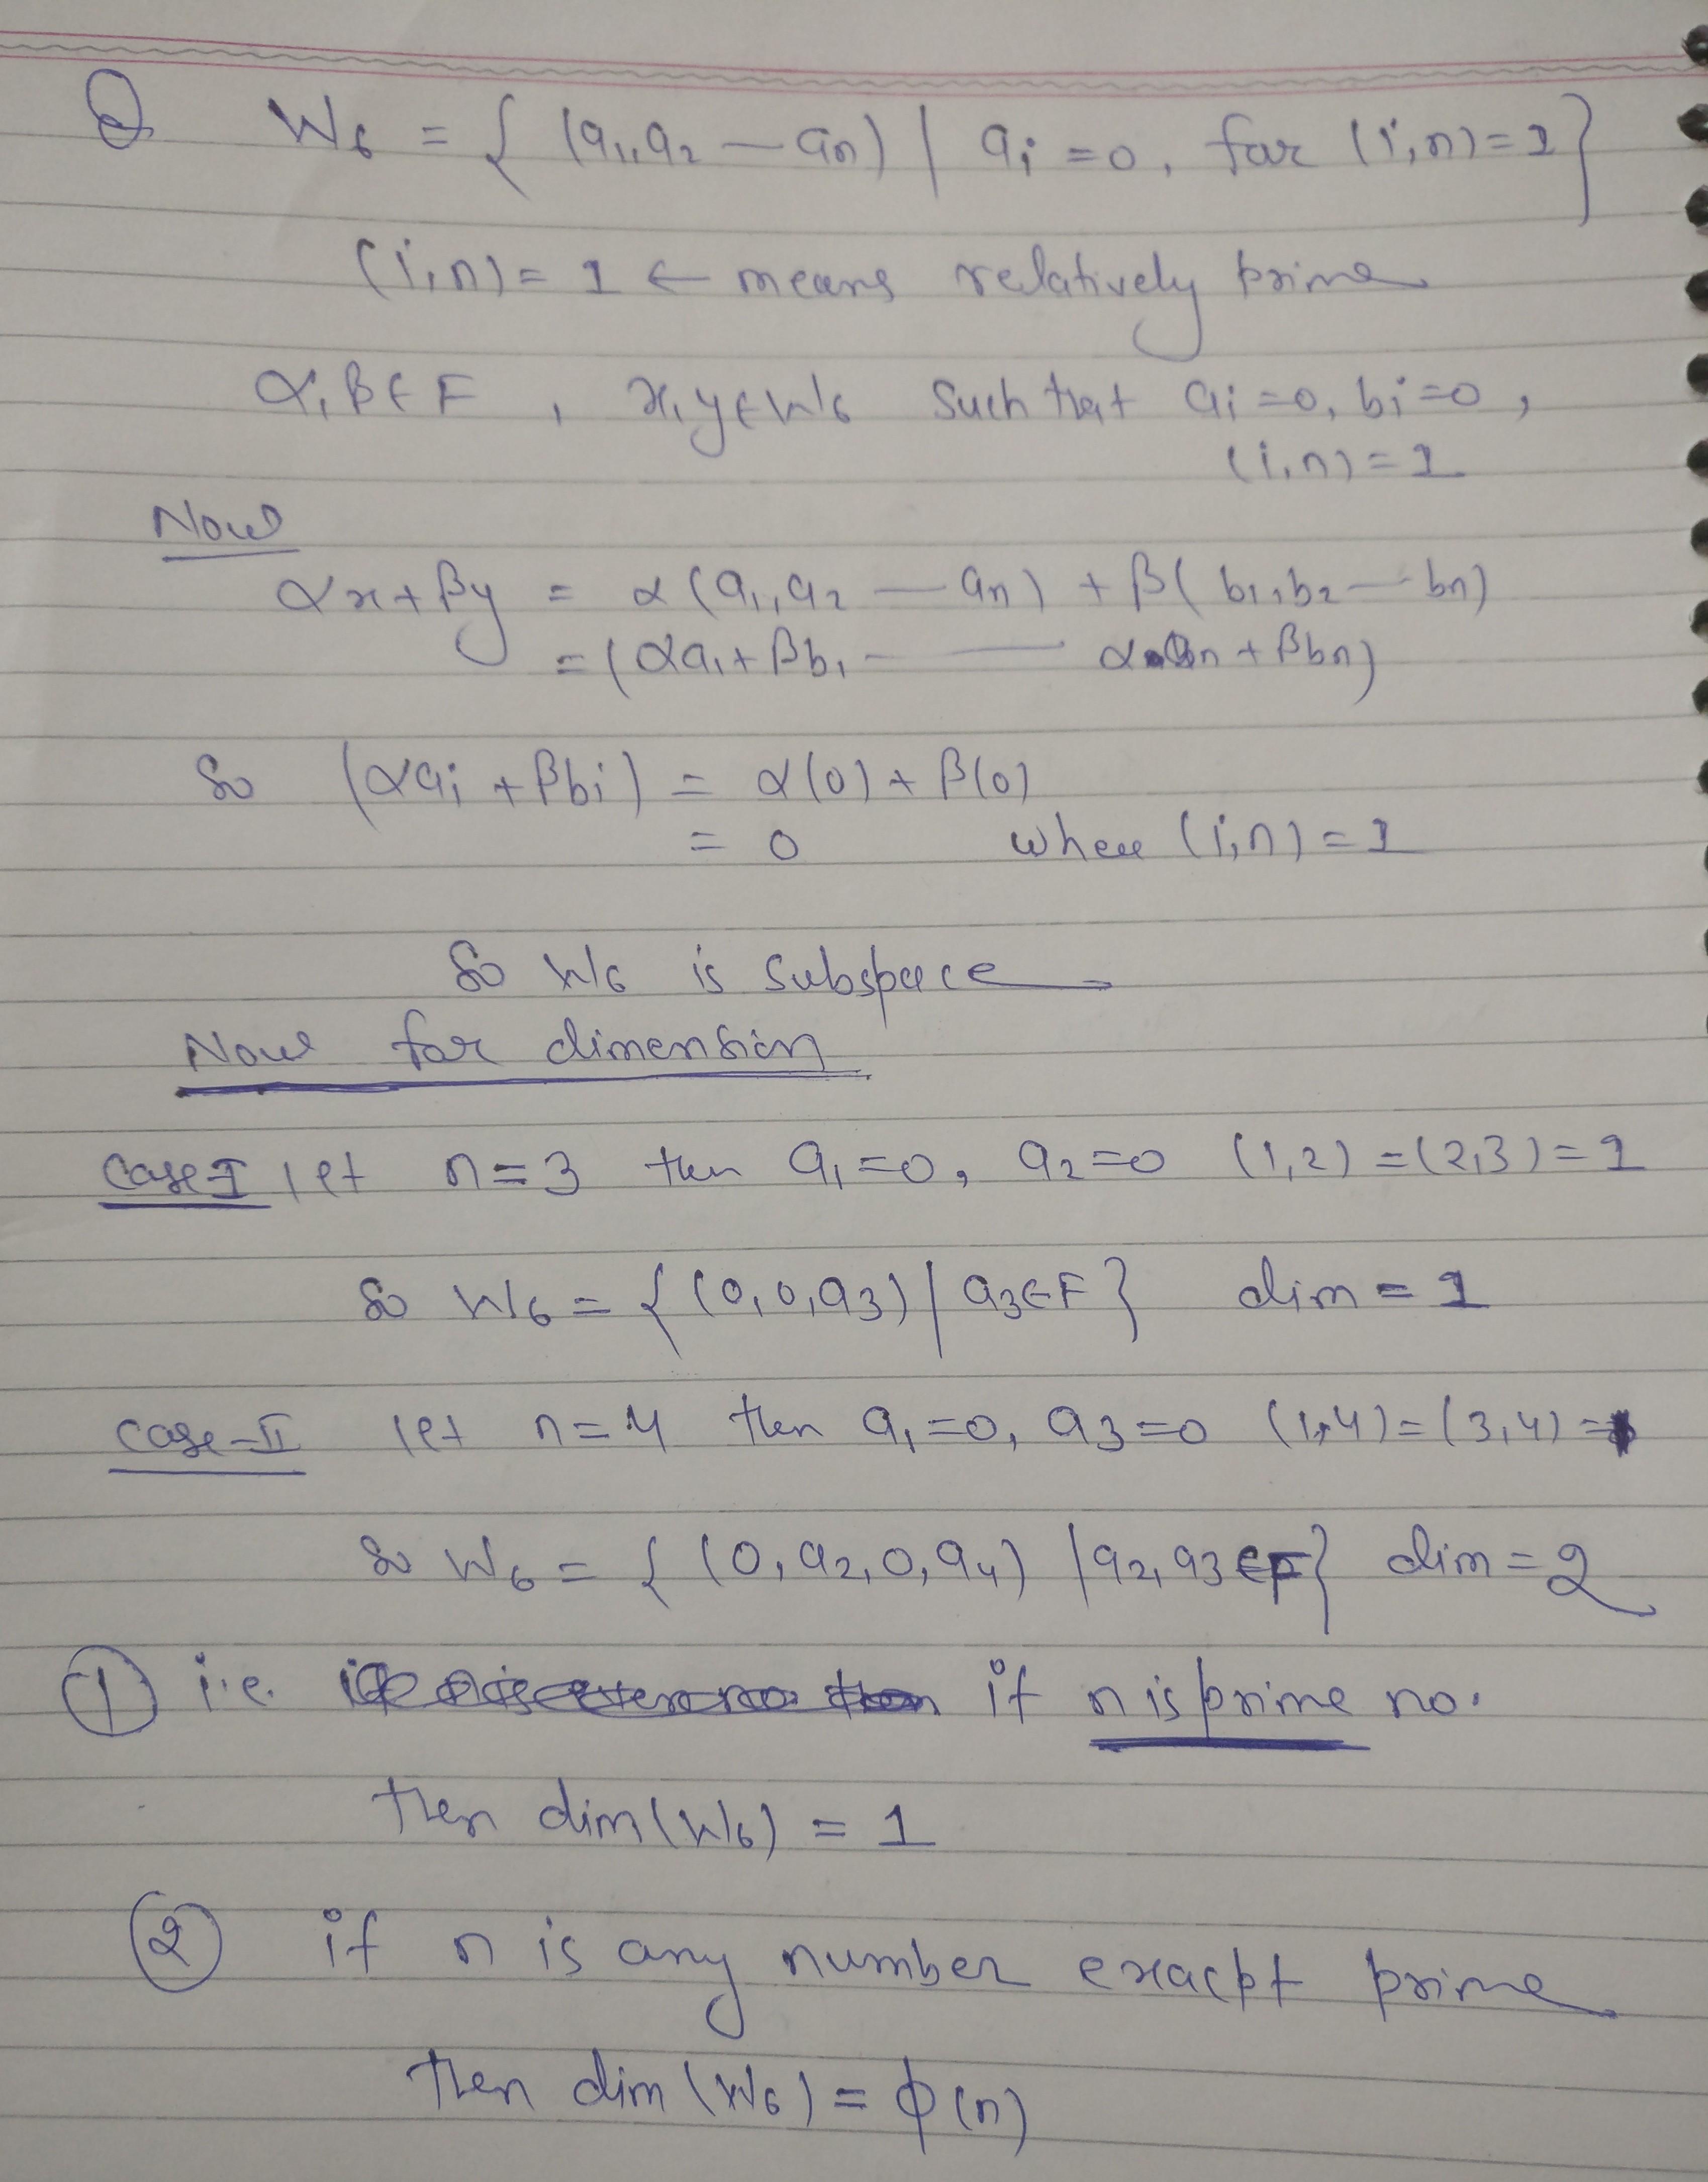 Q W₆ = { (a₁, a₂ — an) | ai = 0, for (i,n) = 1 }
(i,n) = 1 ← means relatively prime
α, β ∈ F , x, y ∈ W₆ such that ai = 0, bi = 0 ,
(i,n) = 1
Now
αx + βy = α (a₁, a₂ — an) + β( b₁, b₂ — bn)
= (αa₁ + βb₁ - — αan + βbn)
So (αai + βbi) = α(0) + β(0)
= 0 where (i,n) = 1
So W₆ is subspace
Now for dimension
Case-I let n = 3 then a₁ = 0, a₂ = 0 (1,2) = (2,3) = 1
So W₆ = { (0, 0, a₃) | a₃ ∈ F } dim = 1
Case-II let n = 4 then a₁ = 0, a₃ = 0 (1,4) = (3,4) =
So W₆ = { (0, a₂, 0, a₄) | a₂, a₃ ∈ F } dim = 2
① i.e. if n is prime no.
then dim (W₆) = 1
② if n is any number exacpt prime
then dim (W₆) = ϕ(n)